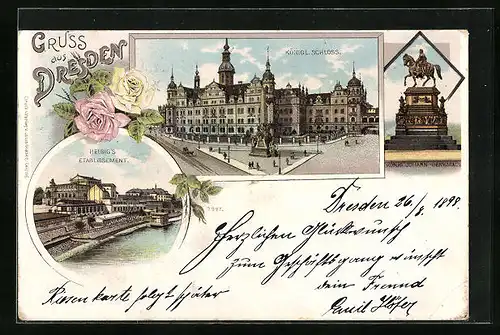 GRUSS
aus
DRESDEN
KÖNIGL. SCHLOSS.
HELBIG'S
ETABLISSEMENT.
Dresden 26/8 1898.
Herzlichen Glückwunsch
zum Geschäftsgang wünscht
dein Freund
Emil Höfer
Riesenkarte folgt später